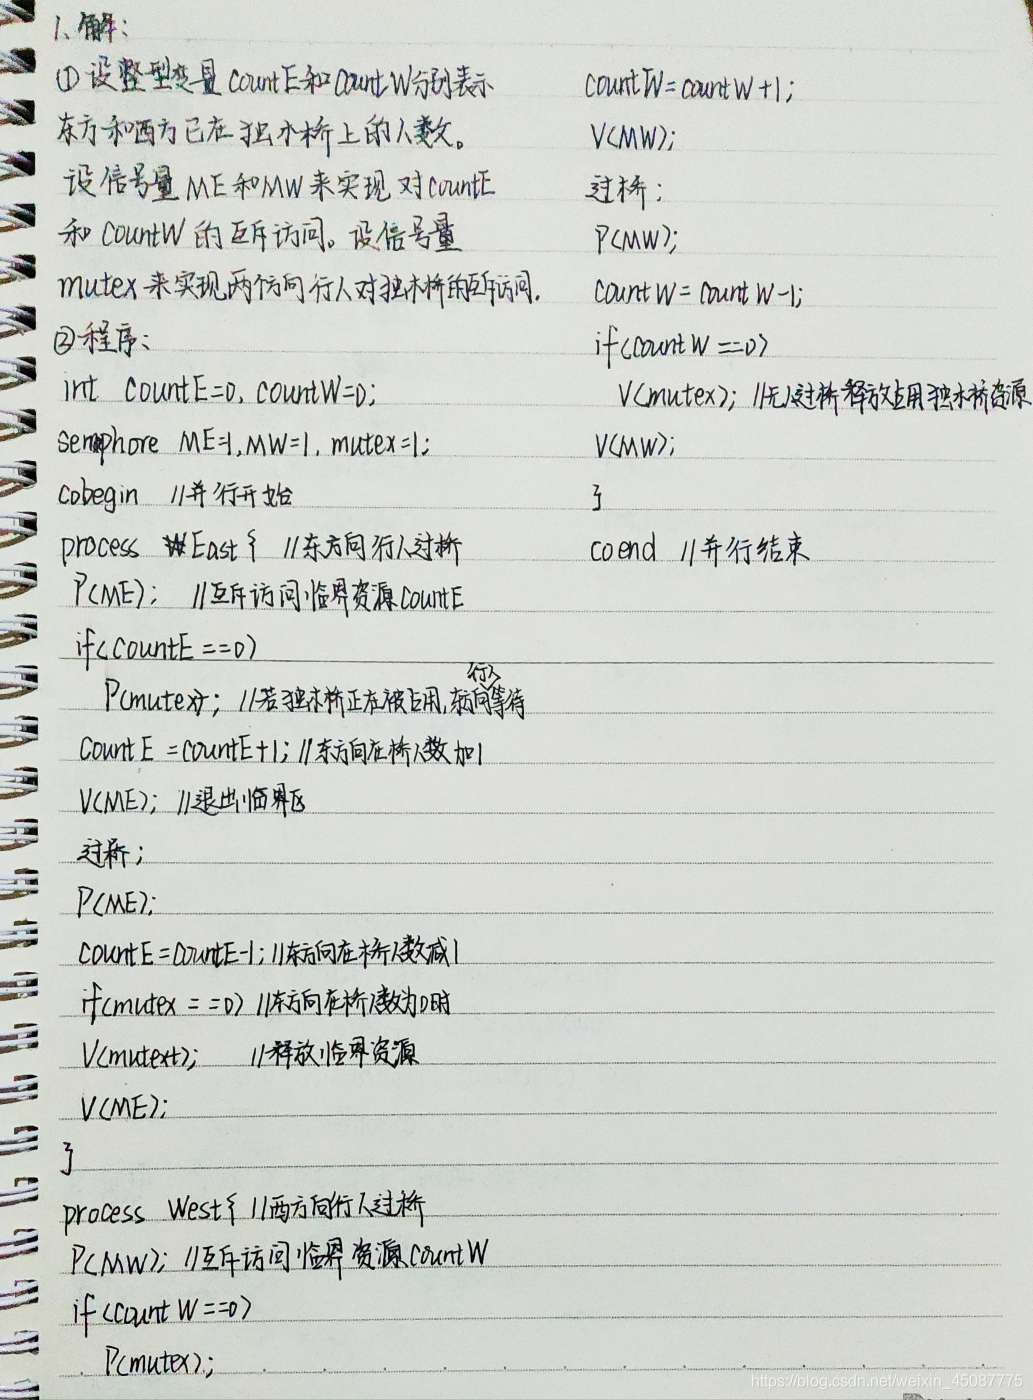 1、解:
①设整型变量countE和countW分别表示
东方和西方已在独木桥上的人数。
设信号量ME和MW来实现对countE
和countW的互斥访问。设信号量
mutex来实现两个方向行人对独木桥的互斥访问.
②程序:
int countE=0, countW=0;
semaphore ME=1,MW=1, mutex=1;
cobegin //并行开始
process East{ //东方向行人过桥
P(ME); //互斥访问临界资源countE
if(countE==0)
P(mutex); //若独木桥正在被占用,东方向行人等待
countE=countE+1; //东方向在桥人数加1
V(ME); //退出临界区
过桥;
P(ME);
countE=countE-1; //东方向在桥人数减1
if(mutex==0) //东方向在桥人数为0时
V(mutext); //释放临界资源
V(ME);
}
process West{ //西方向行人过桥
P(MW); //互斥访问临界资源countW
if(countW==0)
P(mutex);
countW=countW+1;
V(MW);
过桥;
P(MW);
countW=countW-1;
if(countW==0)
V(mutex); //无人过桥释放占用独木桥资源
V(MW);
}
coend //并行结束
https://blog.csdn.net/weixin_45087775